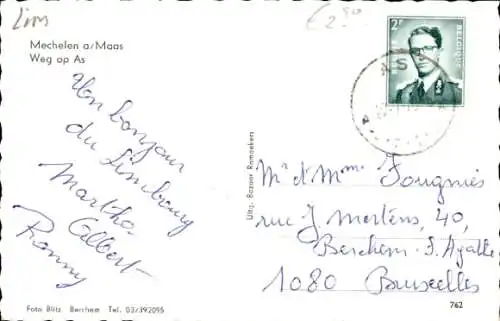 Lim
€ 2,50
Mechelen a/Maas
Weg op As
2F
BELGIQUE
AS
Un bonjour
du Limbourg
Martha
Albert
Ronny
Uitg. Bazaar Romaekers
Mr et Mme Fougnies
rue J. Mertens, 40,
Berchem-S. Agathe
1080 Bruxelles
Foto Blitz Berchem Tel. 03/392095
762